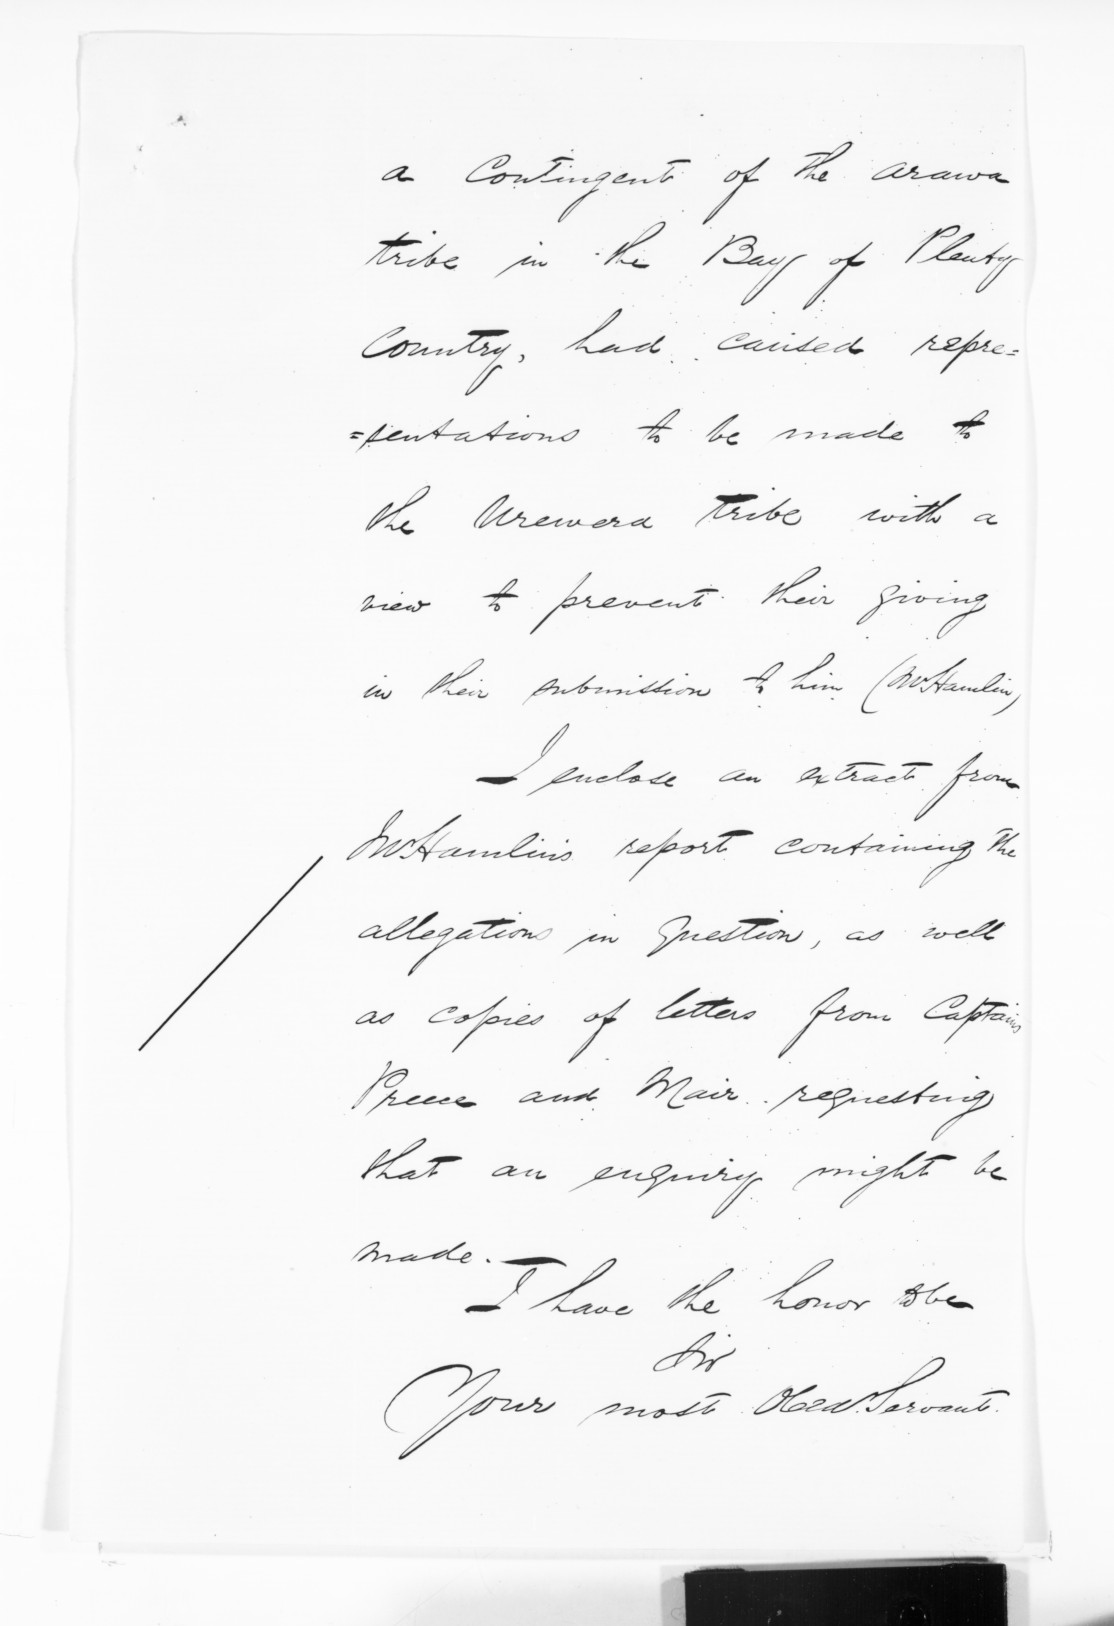 a Contingent of the Arawa
tribe in the Bay of Plenty
Country, had caused repre=
=sentations to be made to
the Urewera tribe with a
view to prevent their giving
in their submission to him (Mr Hamlin)
I enclose an extract from
Mr Hamlin's report containing the
allegations in question, as well
as copies of letters from Captains
Preece and Mair requesting
that an enquiry might be
made.
I have the honor to be
Sir
Your most Obed.t Servant.